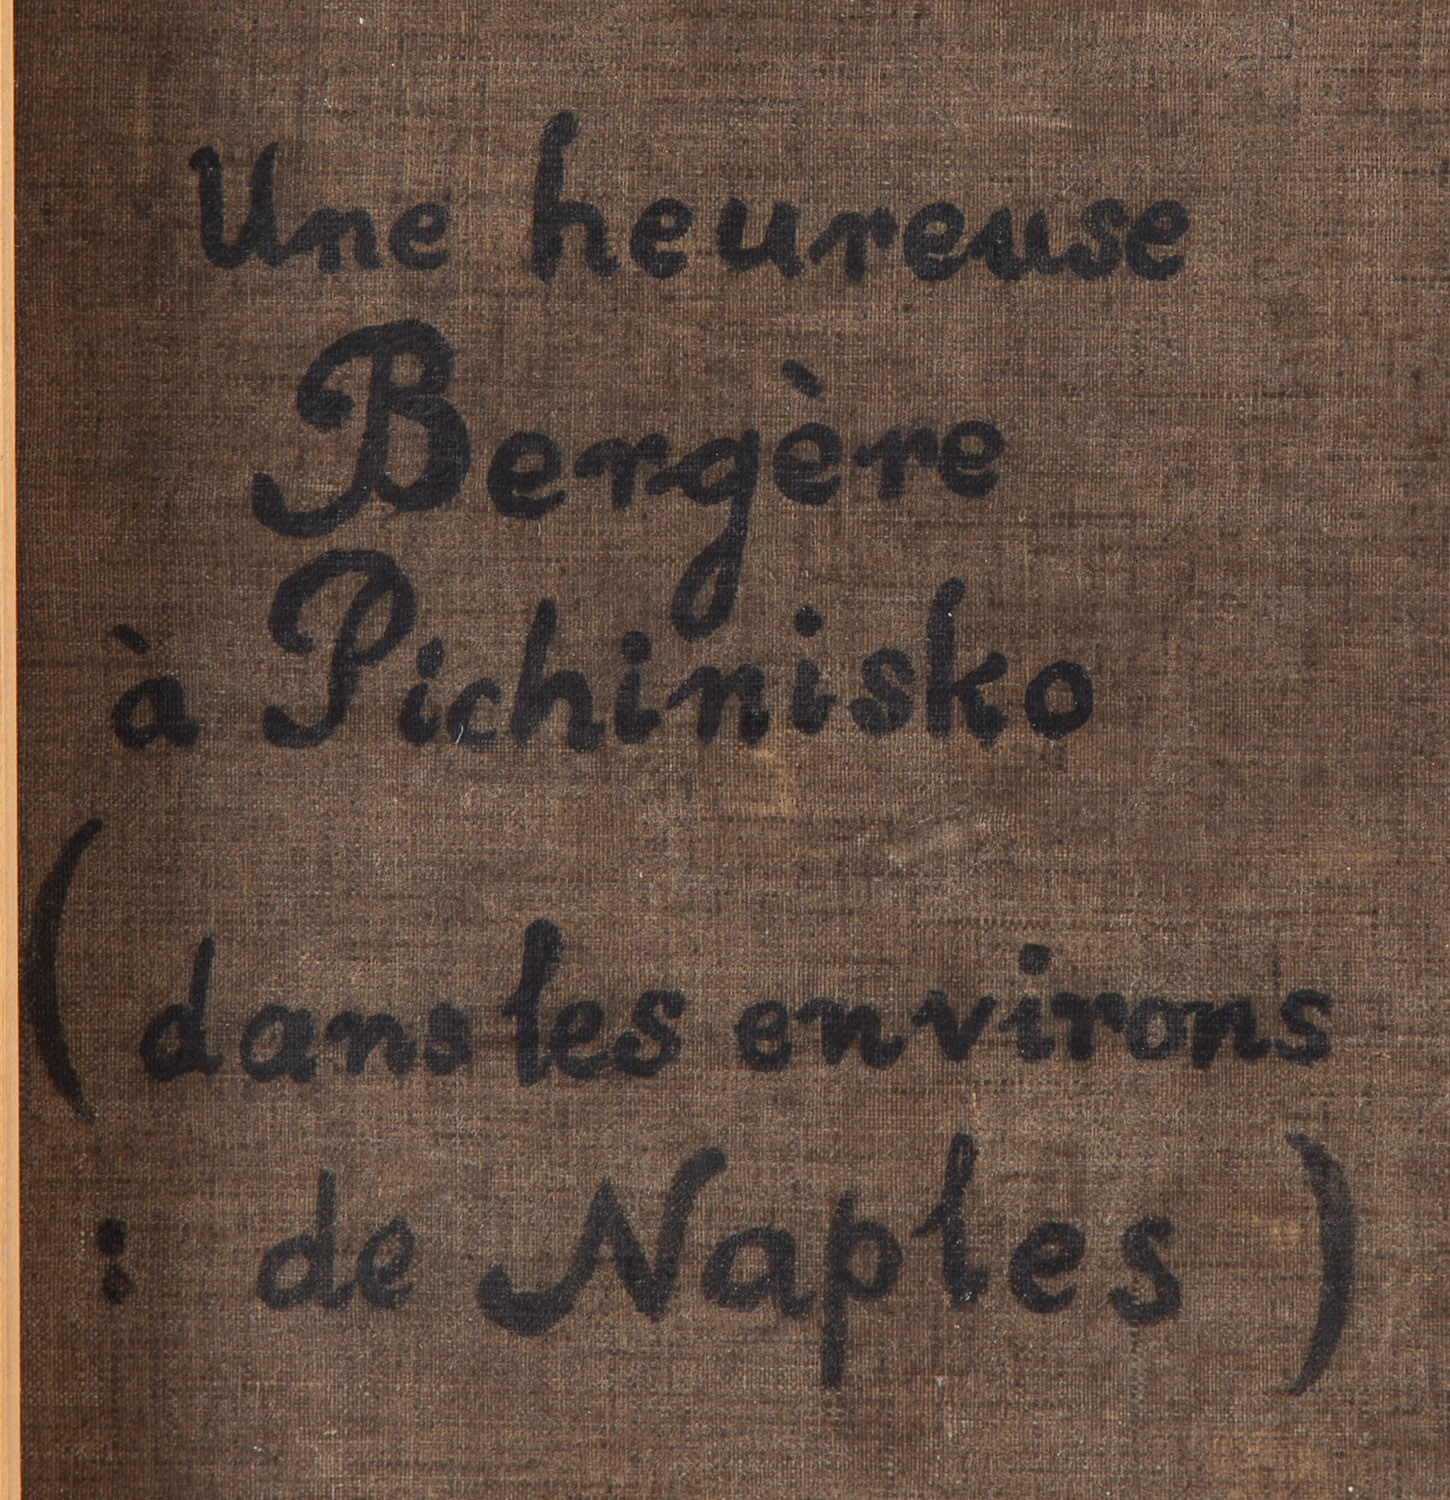 Une heureuse
Bergère
à Pichinisko
(dans les environs
: de Naples)